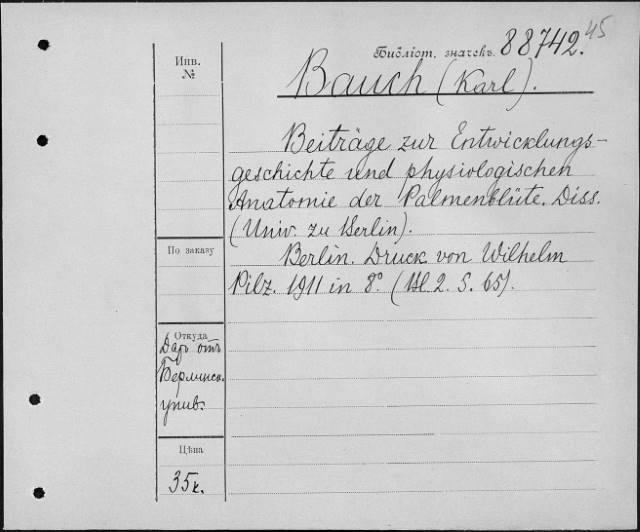 45
Библіот. значекъ. 88742.
Инв.
№
Bauch (Karl).
Beiträge zur Entwicklungs-
geschichte und physiologischen
Anatomie der Palmenblüte. Diss.
(Univ. zu Berlin).
По заказу
Berlin. Druck von Wilhelm
Pilz. 1911 in 8° (Bl 2. S. 65).
Откуда
Даръ отъ
Берлинск.
унив.
Цѣна
35к.